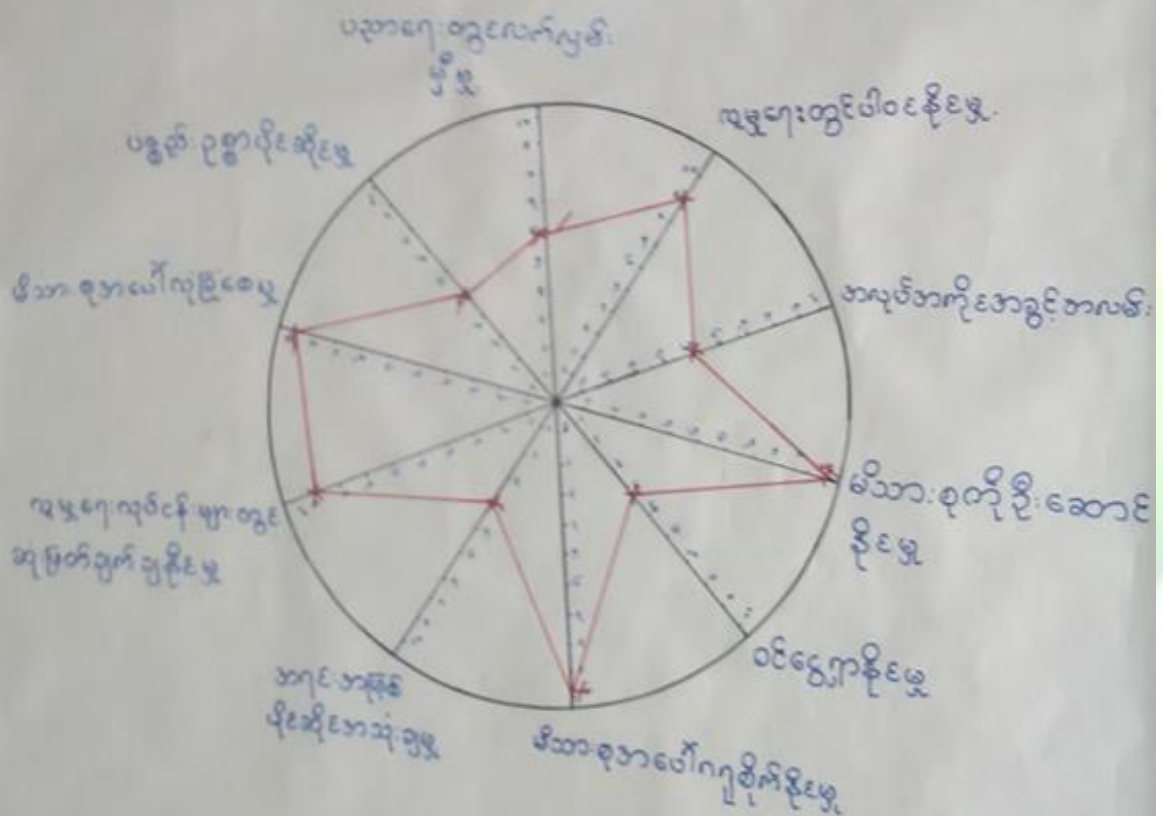 ပညာရေးတွင်လက်လှမ်း
မှီမှု
လူမှုရေးတွင်ပါဝင်နိုင်မှု.
အလုပ်အကိုင်အခွင့်အလမ်း
မိသားစုကိုဦးဆောင်
နိုင်မှု
ဝင်ငွေရှာနိုင်မှု
မိသားစုအပေါ်ဂရုစိုက်နိုင်မှု
အရင်းအမြစ်
ပိုင်ဆိုင်အသုံးချမှု
လူမှုရေးလုပ်ငန်းများတွင်
ဆုံးဖြတ်ချက်ချနိုင်မှု
မိသားစုအပေါ်လုံခြုံစေမှု
ပစ္စည်းဥစ္စာပိုင်ဆိုင်မှု